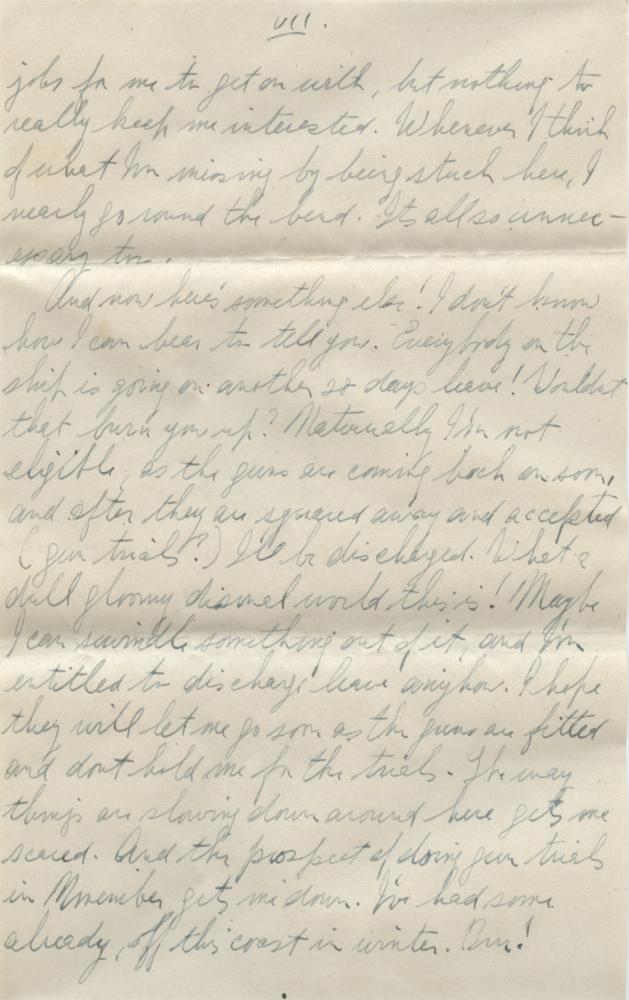 VII.
jobs for me to get on with, but nothing to
really keep me interested. Whenever I think
of what I'm missing by being stuck here, I
nearly go round the bend. Its all so unnec-
essary too.
And now here's something else! I don't know
how I can bear to tell you. Everybody on the
ship is going on another 28 days leave! Wouldnt
that burn you up? Naturually I'm not
eligible, as the guns are coming back on soon,
and after they are squared away and accepted
(gun trials?) I'll be discharged. What a
dull gloomy dismal world this is! Maybe
I can swindle something out of it, and I'm
entitled to discharge leave anyhow. I hope
they will let me go soon as the guns are fitted
and dont hold me for the trials. The way
things are slowing down around here gets me
scared. And the prospect of doing gun trials
in November gets me down. I've had some
already, off this coast in winter. Brr!